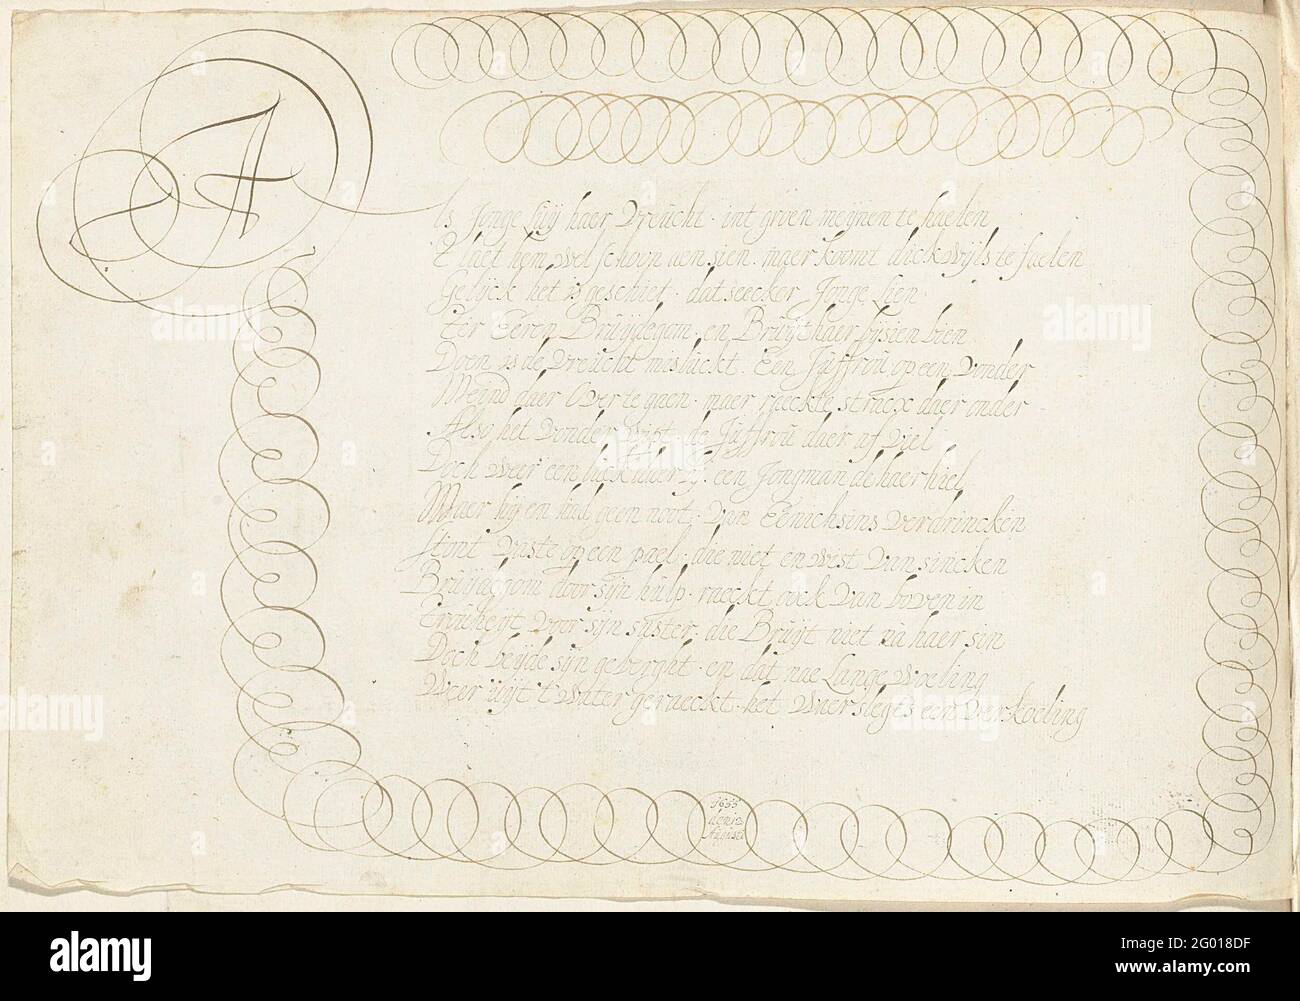 Als Jonge Luij haer Vreucht. int groen meijnen te haelen
T laet hem wel schoon aensien. maer koomt dickwijls te faelen
Gelijck het is geschiet. dat seecker Jonge Lien
ter Eeren Bruijdegom. en Bruijt haer bysien bien
Doen is de Vreucht misluckt. Een Juffrou op een Vonder
Meijnd daer Over te gaen. maer raeckte straex daer onder
Also het Vonder Wipt. de Juffrou daer af Viel
Doch weer een luck daer bij. een Jongman de haer hiel
Maer hij en had geen noot. Van Eenichsins verdrincken
stont Vaste op een pael. die niet en wist Van sincken
Bruijdegom door sijn hulp. raeckt oock Van boven in
Trouheijt Voor sijn suster. die Bruijt niet na haer sin
Doch beijde sijn geberght. en dat nae Lange woeling
Weer uijt 't water geraeckt. het Waer slegts een Verkoeling
1655
Augusti
alamy
Image ID: 2G018DF
www.alamy.com